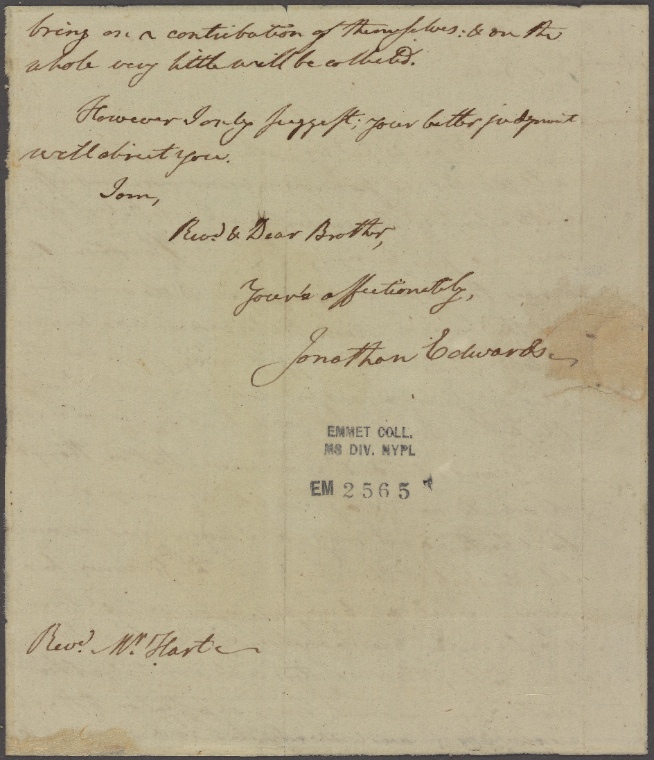 bring on a contribution of themselves: & on the
whole very little will be collected.
However I only suggest; your better judgment
will direct you.
I am,
Revd. & Dear Brother,
Your's affectionately,
Jonathan Edwards
EMMET COLL.
MS DIV. NYPL
EM 2565
Revd. Mr. Hart